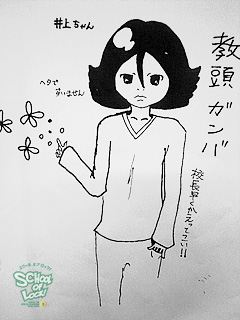 井上ちゃん
教頭ガンバ
ヘタで
すいません
校長早くかえってこい!!
SCHOOL
OF
LOCK!